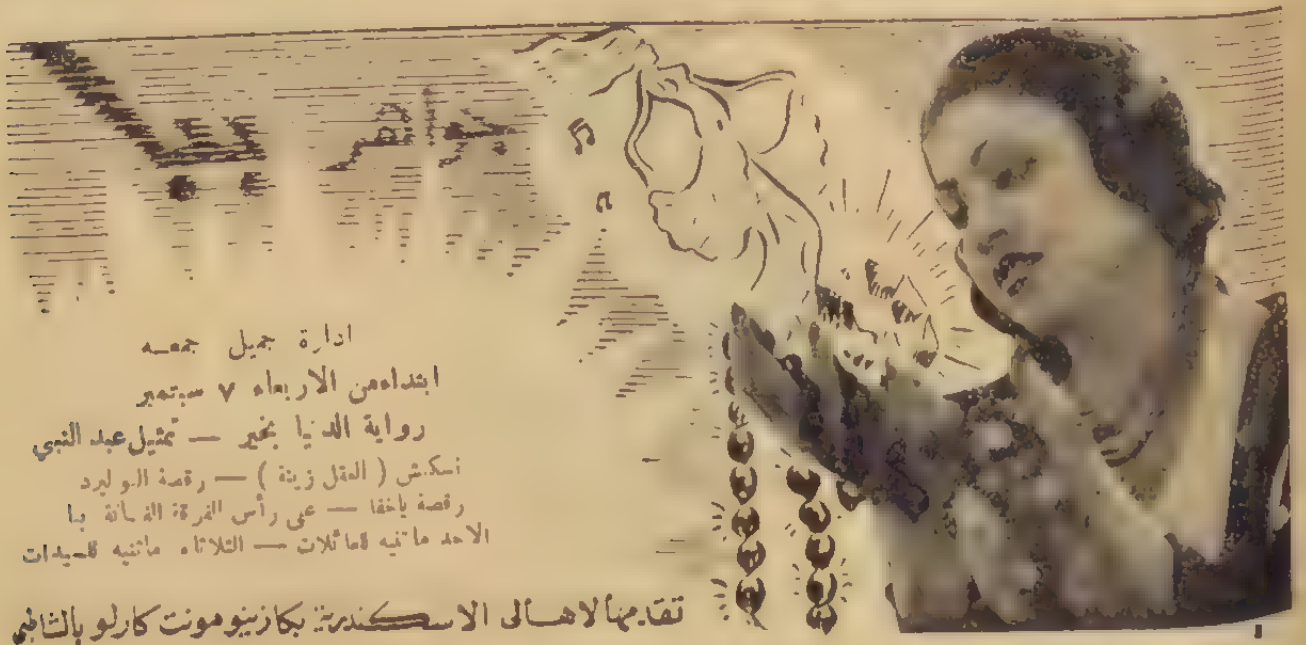 ادارة جميل جمعه
ابتداء من الاربعاء ٧ سبتمبر
رواية الدنيا بخير — تمثيل عبد النبي
اسكتش ( العقل زينة ) — رقصة
رقصة — على رأس الفرقة الفنانة ببا
الاحد ماتنيه للعائلات — الثلاثاء ماتنيه للسيدات
تقدمها لاهالى الاسكندرية بكازينو مونت كارلو بالشاطبي